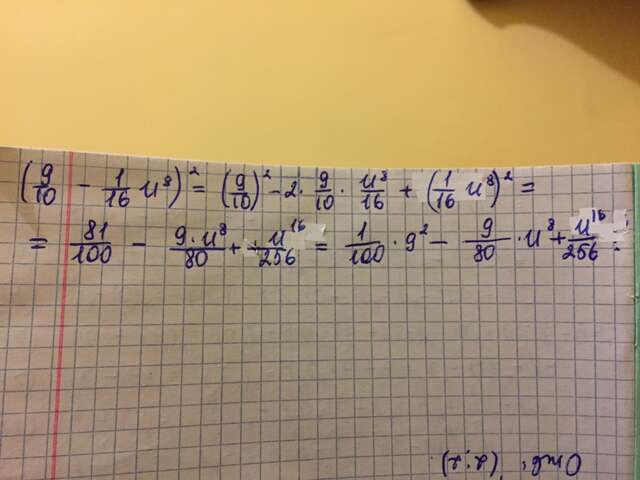 (9/10 - 1/16 u⁸)² = (9/10)² - 2 · 9/10 · u⁸/16 + (1/16 u⁸)² =
= 81/100 - 9·u⁸/80 + u¹⁶/256 = 1/100 · 9² - 9/80 · u⁸ + u¹⁶/256 =
Отв: